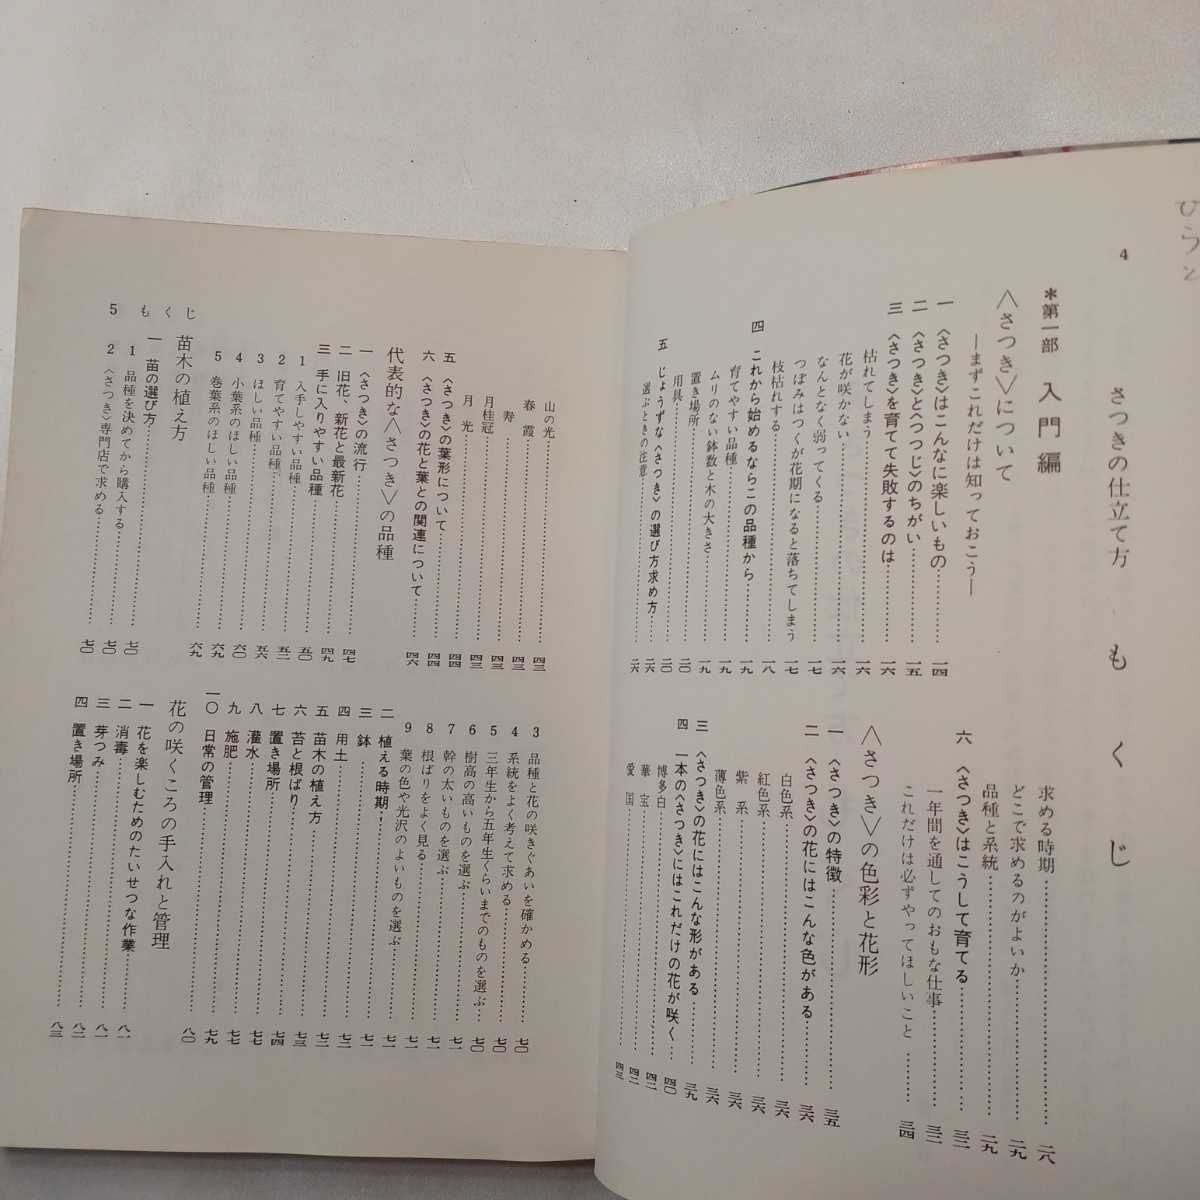 ひらと
4
さつきの仕立て方 もくじ
*第一部 入門編
〈さつき〉について
―まずこれだけは知っておこう―
一 〈さつき〉はこんなに楽しいもの……一四
二 〈さつき〉とつつじのちがい……一五
三 〈さつき〉を育てて失敗するのは……一六
枯れてしまう……一六
花が咲かない……一六
なんとなく弱ってくる……一七
つぼみはつくが花期になると落ちてしまう……一七
枝枯れする……一八
四 これから始めるならこの品種から……一九
育てやすい品種……一九
ムリのない鉢数と木の大きさ……一九
置き場所……二〇
用具……二〇
五 じょうずな〈さつき〉の選び方求め方……二六
選ぶときの注意……二六
求める時期……二八
どこで求めるのがよいか……二九
品種と系統……二九
六 〈さつき〉はこうして育てる……三二
一年間を通してのおもな仕事……三二
これだけは必ずやってほしいこと……三四
〈さつき〉の色彩と花形
一 〈さつき〉の特徴……三五
二 〈さつき〉の花にはこんな色がある……三六
白色系……三六
紅色系……三六
紫系……三六
薄色系……三六
三 〈さつき〉の花にはこんな形がある……三九
四 一本の〈さつき〉にはこれだけの花が咲く……四〇
博多白……四二
華宝……四二
愛国……四三
山の光……四三
春霞……四三
寿……四三
月桂冠……四三
月光……四四
五 〈さつき〉の葉形について……四四
六 〈さつき〉の花と葉との関連について……四六
代表的な〈さつき〉の品種
一 〈さつき〉の流行……四七
二 旧花、新花と最新花……四九
三 手に入りやすい品種……五〇
1 入手しやすい品種……五〇
2 育てやすい品種……五二
3 ほしい品種……五六
4 小葉系のほしい品種……六〇
5 巻葉系のほしい品種……六九
苗木の植え方
一 苗の選び方……七〇
1 品種を決めてから購入する……七〇
2 〈さつき〉専門店で求める……七〇
5 もくじ
3 品種と花の咲きぐあいを確かめる……七〇
4 系統をよく考えて求める……七〇
5 三年生から五年生くらいまでのものを選ぶ……七〇
6 樹高の高いものを選ぶ……七〇
7 幹の太いものを選ぶ……七一
8 根ばりをよく見る……七一
9 葉の色や光沢のよいものを選ぶ……七一
二 植える時期……七一
三 鉢……七一
四 用土……七二
五 苗木の植え方……七二
六 苔と根ばり……七三
七 置き場所……七四
八 灌水……七七
九 施肥……七七
一〇 日常の管理……七九
花の咲くころの手入れと管理……八〇
一 花を楽しむためのたいせつな作業……八一
二 消毒……八一
三 芽つみ……八二
四 置き場所……八三